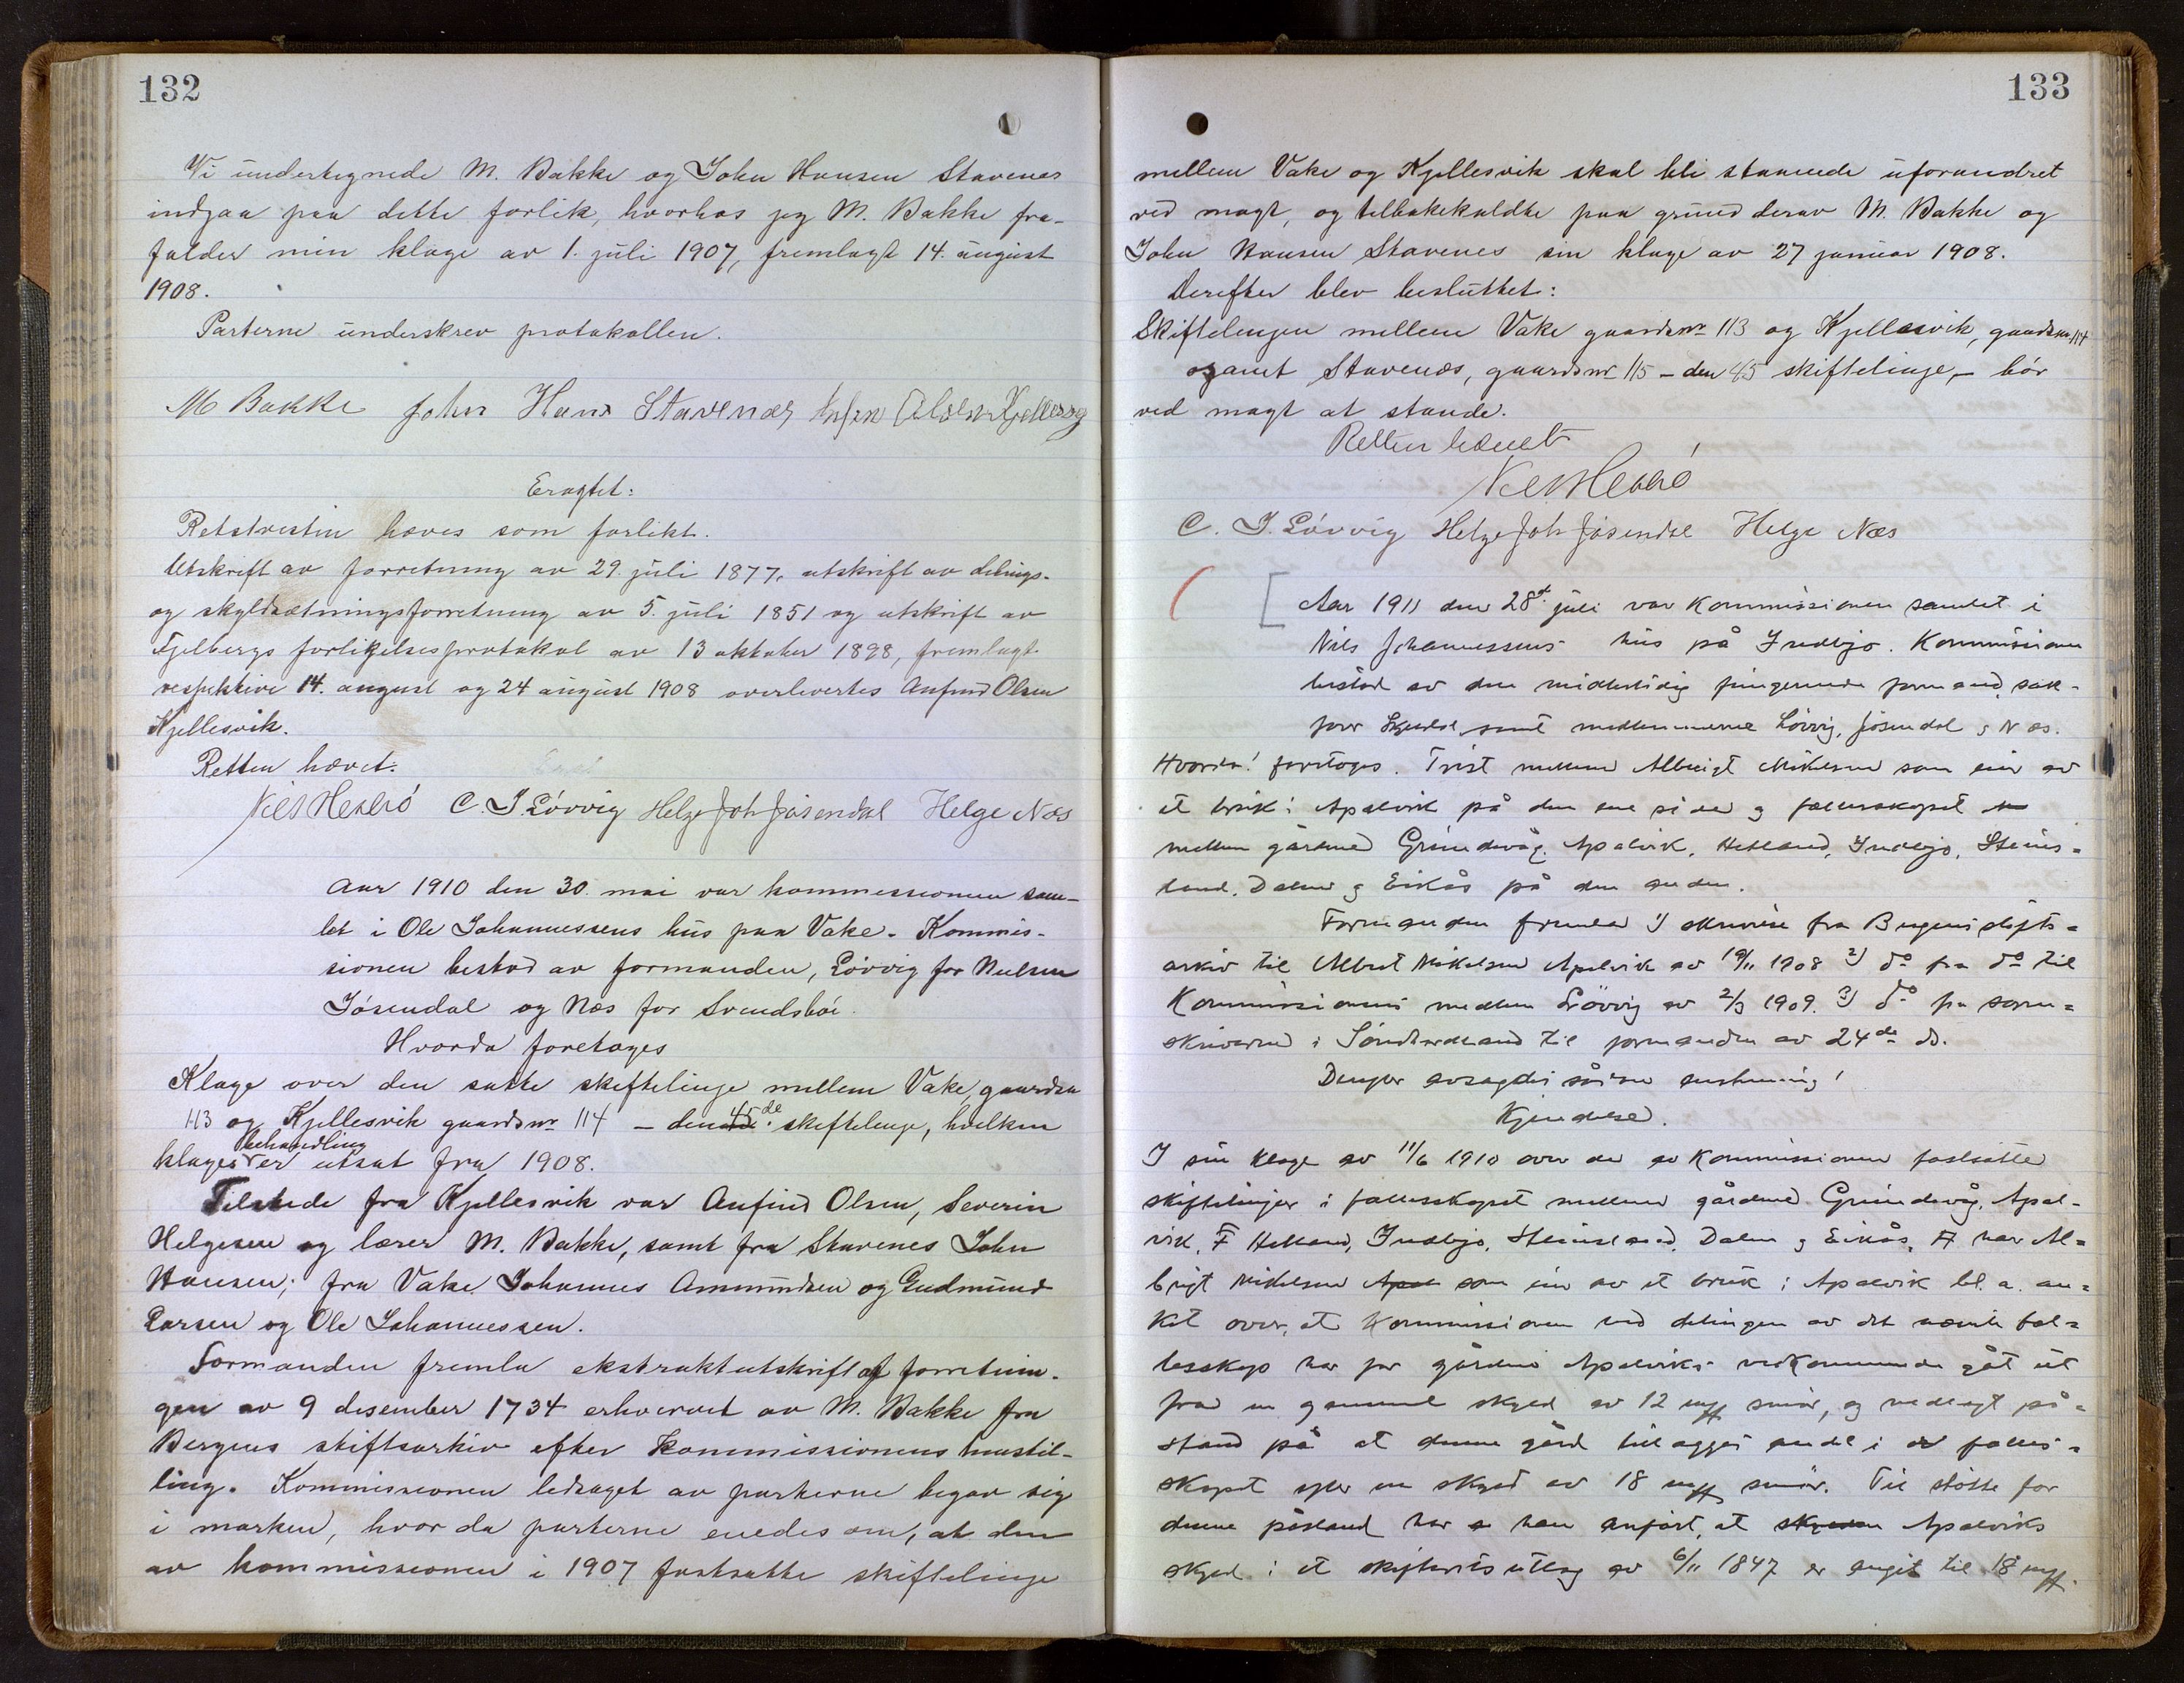 132
Vi undertegnede M. Bakke og John Hansen Stavenes
indgaa paa dette forlik, hvorhos jeg M. Bakke fra-
falder min klage av 1. juli 1907, fremlagt 14. august
1908.
Parterne underskrev protokollen.
M Bakke John Hans Stavenæs
Eragtet:
Retstvisten hæves som forlikt.
Utskrift av forretning av 29. juli 1877, utskrift av delings-
og skyldsætningsforretning av 5. juli 1851 og utskrift av
Fjelbergs forlikelsesprotokol av 13 oktober 1898, fremlagt
respektive 14. august og 24 august 1908 overlevertes Anfind Olsen
Kjellesvik.
Retten hævet.
C. J. Lövvig Helge Joh Jösendal Helge Næs
Aar 1910 den 30. mai var kommissionen sam-
let i Ole Johannessens hus paa Vake. Kommis-
sionen bestod av formanden, Lövvig for Nielsen
Jösendal og Næs for Svendsböe.
Hvorda foretoges
Klage over den satte skiftelinje mellem Vake, gaardsn
113 og Kjellesvik gaardsnr 114 – den 45de skiftelinje, hvilken
behandling
klages er utsat fra 1908.
Tilstede fra Kjellesvik var Anfind Olsen, Severin
Helgesen og lærer M. Bakke, samt fra Stavenes John
Hansen; fra Vake Johannes Amundsen og Gudmund
Larsen og Ole Johannessen.
Formanden fremla ekstraktutskrift af forretnin-
gen av 9 desember 1734 erhvervet av M. Bakke fra
Bergens stiftsarkiv efter kommissionens henstil-
ling. Kommissionen ledsaget av parterne begav sig
i marken, hvor da parterne enedes om, at den
av kommissionen i 1907 fastsatte skiftelinje
133
mellem Vake og Kjellesvik skal bli staaende uforandret
ved magt, og tilbakekaldte paa grund derav M. Bakke og
John Hansen Stavenes sin klage av 27 januar 1908.
Derefter blev besluttet:
Skiftelinjen mellem Vake gaardsnr 113 og Kjellesvik, gaardsnr 114
samt Stavenæs, gaardsnr 115 – den 45 skiftelinje, – bör
ved magt at stande.
Retten hævet
C. J. Lövvig Helge Joh Jösendal Helge Næs
Aar 1911 den 28de juli var Kommissionen samlet i
Nils Johannessens hus på Indbjo. Kommissionen
bestod av den midlertidig fungerende formand, sak-
förer samt medlemmerne Lövvig, Jösendal og Næs.
Hvorda foretoges. Tvist mellem Albrigt Mikelsen som eier av
et bruk i Apalvik på den ene side og fællesskapet
mellem gårdene Grindevåg, Apalvik, Helland, Indbjo, Steins-
land, Dalen og Eikås på den anden.
Formanden fremla 1) skrivelse fra Bergens stifts-
arkiv til Albret Mikelsen Apalvik av 19/11 1908 2) do fra do til
Kommissionens medlem Lövvig av 2/3 1909. 3) do fra soren-
skriveren i Söndhordland til formanden av 24de ds.
Derefter avsagdes sådan
Kjendelse.
I sin klage av 11/6 1910 over de av Kommissionen fastsatte
skiftelinjer i fællesskapet mellem gårdene Grindevåg, Apal-
vik, Helland, Indbjo, Steinsland, Dalen og Eikås, har Al-
brigt Mikelsen som eier av et bruk i Apalvik bl. a. an-
ket over, at Kommissionen ved delingen av det nævnte fæl-
lesskap har for gården Apalviks vedkommende gåt ut
fra en gammel skyld av 12 smör, og nedlagt på-
stand på at denne gård tillægges andel i fælles-
skapet efter en skyld av 18 smör. Til stötte for
denne påstand har han anfört, at Apalviks
skyld i et skifterets utlæg av 6/11 1847 er angit til 18